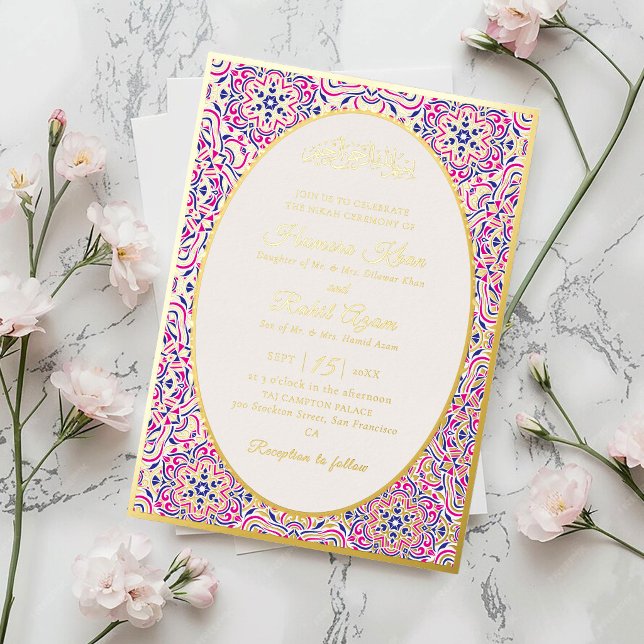 JOIN US TO CELEBRATE
THE NIKAH CEREMONY OF
Khan
Daughter of Mr. & Mrs. Dilawar Khan
and
Rahil Azam
Son of Mr. & Mrs. Hamid Azam
SEPT 15 20XX
at 3 o'clock in the afternoon
TAJ CAMPTON PALACE
300 Stockton Street, San Francisco
CA
Reception to follow